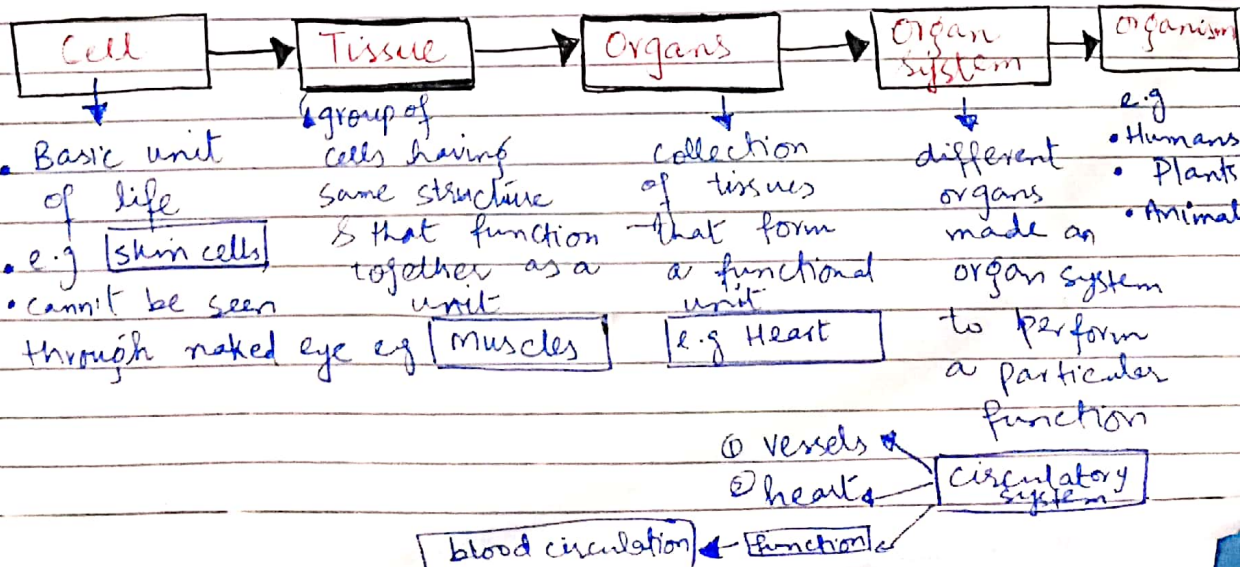 Cell
Tissue
Organs
Organ
system
organism
• Basic unit
of life
• e.g skin cells
• cann't be seen
through naked eye
group of
cells having
same structure
& that function
together as a
unit
eg Muscles
collection
of tissues
that form
a functional
unit
e.g Heart
different
organs
made an
organ system
to perform
a particular
function
e.g
• Humans
• Plants
• Animal
① vessels
② heart
circulatory
system
function
blood circulation